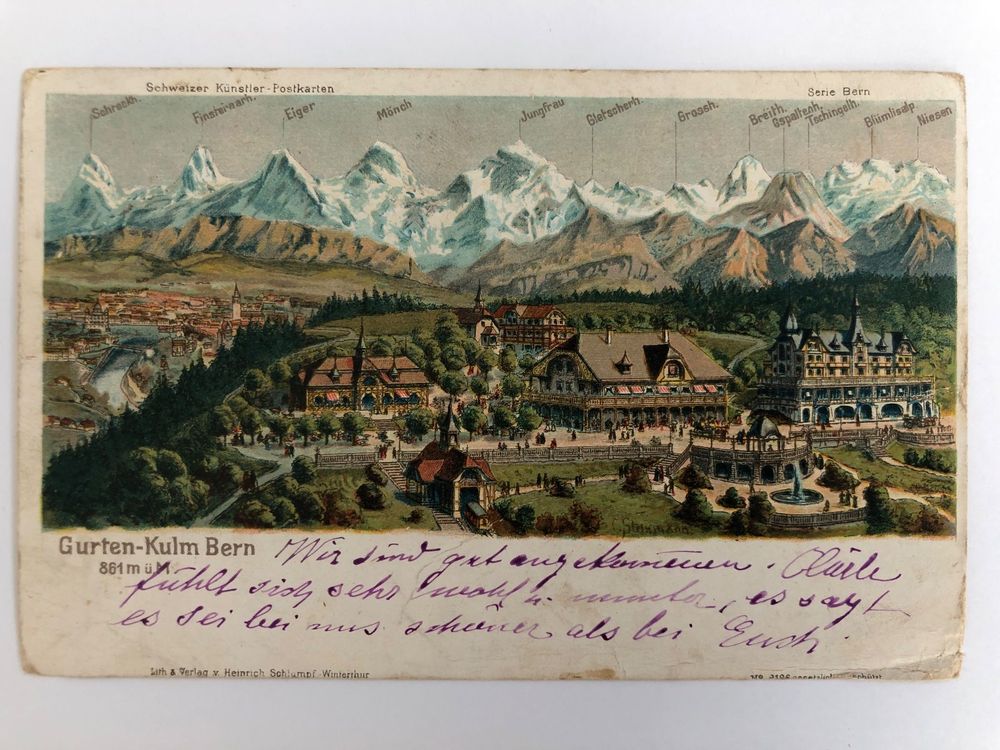 Schweizer Künstler-Postkarten
Serie Bern
Schreckh.
Finsteraarh.
Eiger
Mönch
Jungfrau
Gletscherh.
Grossh.
Breith.
Gspaltenh.
Tschingelh.
Blümlisalp
Niesen
Gurten-Kulm Bern
861 m ü. M.
Wir sind gut angekommen.
fühlt sich sehr wohl u. munter, es sagt
es sei bei uns schöner als bei Euch.
Lith & Verlag v. Heinrich Schlumpf Winterthur